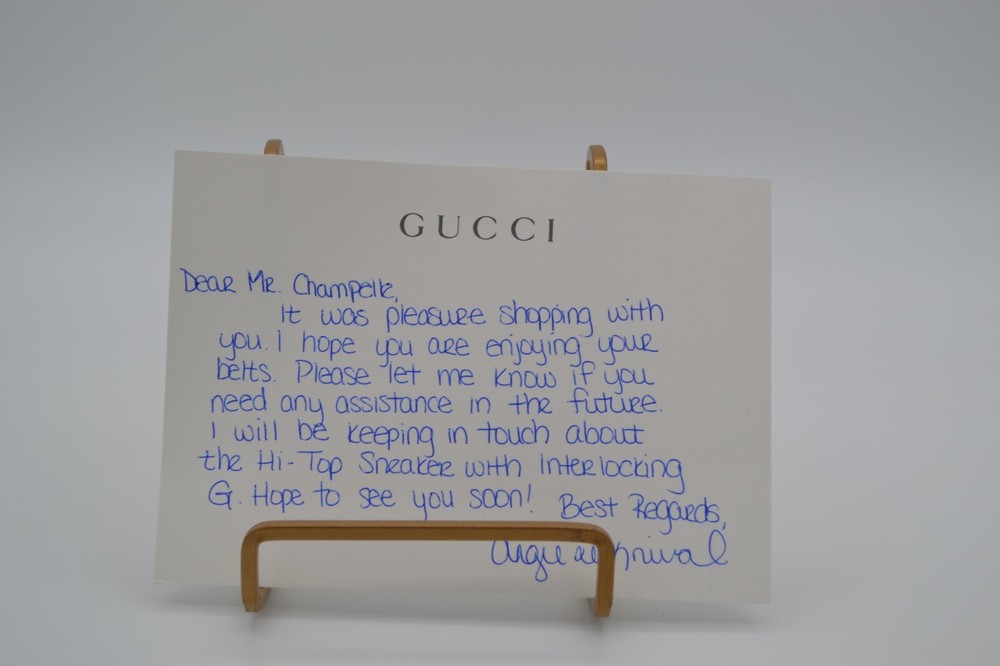 GUCCI
Dear Mr. Champelle,
It was pleasure shopping with
you. I hope you are enjoying your
belts. Please let me know if you
need any assistance in the future.
I will be keeping in touch about
the Hi-Top Sneaker with Interlocking
G. Hope to see you soon! Best Regards,